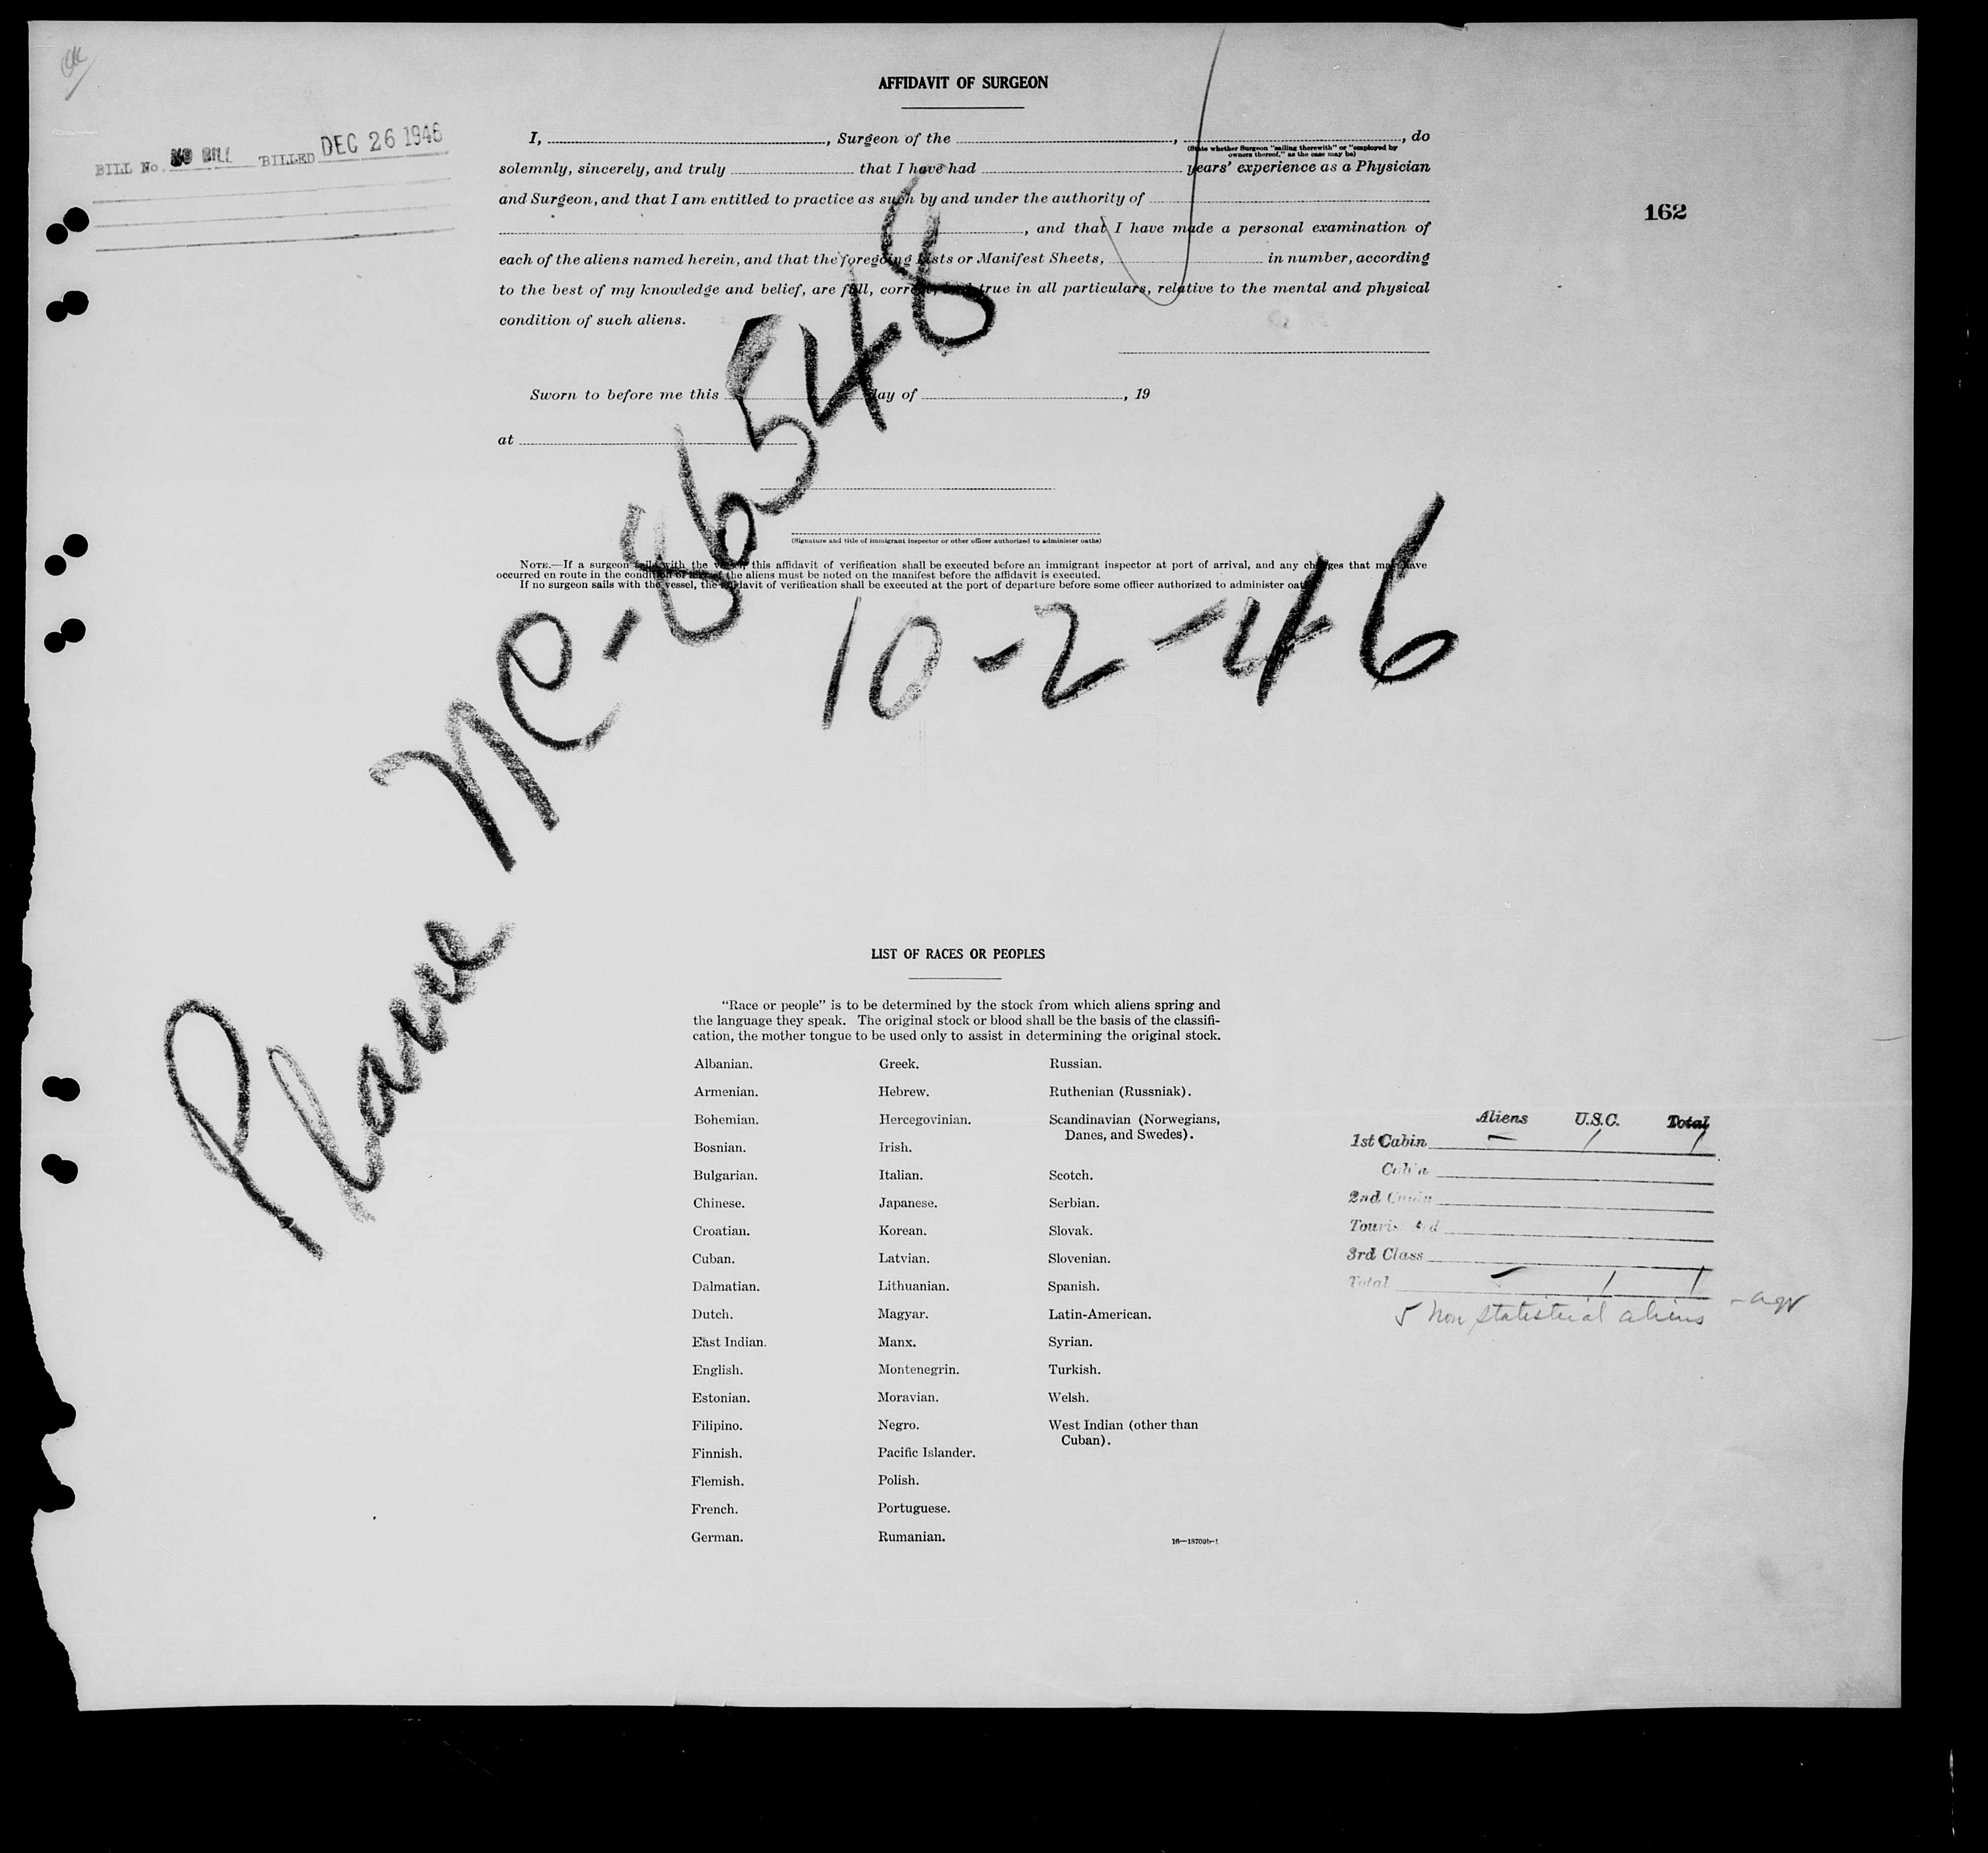 OK
AFFIDAVIT OF SURGEON
BILL No. NO BILL BILLED DEC 26 1946
I, , Surgeon of the , , do
(State whether Surgeon "sailing therewith" or "employed by
owners thereof," as the case may be)
solemnly, sincerely, and truly that I have had years' experience as a Physician
and Surgeon, and that I am entitled to practice as such by and under the authority of
, and that I have made a personal examination of
each of the aliens named herein, and that the foregoing Lists or Manifest Sheets, in number, according
to the best of my knowledge and belief, are full, correct, and true in all particulars, relative to the mental and physical
condition of such aliens.
162
Sworn to before me this day of , 19
at
(Signature and title of immigrant inspector or other officer authorized to administer oaths)
NOTE.—If a surgeon sails with the vessel, this affidavit of verification shall be executed before an immigrant inspector at port of arrival, and any changes that may have
occurred en route in the condition of any of the aliens must be noted on the manifest before the affidavit is executed.
If no surgeon sails with the vessel, the affidavit of verification shall be executed at the port of departure before some officer authorized to administer oaths.
Plane NC-86548
10-2-46
LIST OF RACES OR PEOPLES
"Race or people" is to be determined by the stock from which aliens spring and
the language they speak. The original stock or blood shall be the basis of the classifi-
cation, the mother tongue to be used only to assist in determining the original stock.
Albanian.
Armenian.
Bohemian.
Bosnian.
Bulgarian.
Chinese.
Croatian.
Cuban.
Dalmatian.
Dutch.
East Indian.
English.
Estonian.
Filipino.
Finnish.
Flemish.
French.
German.
Greek.
Hebrew.
Hercegovinian.
Irish.
Italian.
Japanese.
Korean.
Latvian.
Lithuanian.
Magyar.
Manx.
Montenegrin.
Moravian.
Negro.
Pacific Islander.
Polish.
Portuguese.
Rumanian.
Russian.
Ruthenian (Russniak).
Scandinavian (Norwegians,
Danes, and Swedes).
Scotch.
Serbian.
Slovak.
Slovenian.
Spanish.
Latin-American.
Syrian.
Turkish.
Welsh.
West Indian (other than
Cuban).
16—18709b-1
Aliens U.S.C. Total
1st Cabin - 1 1
Cabin
2nd Cabin
Tourist 3d
3rd Class
Total - 1 1
5 Non statistical aliens